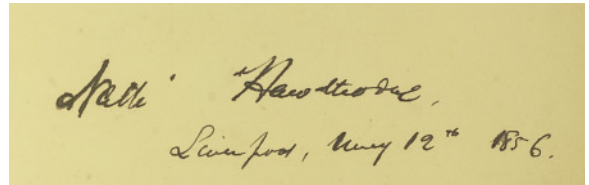 Nathl Hawthorne.
Liverpool, May 12th 1856.